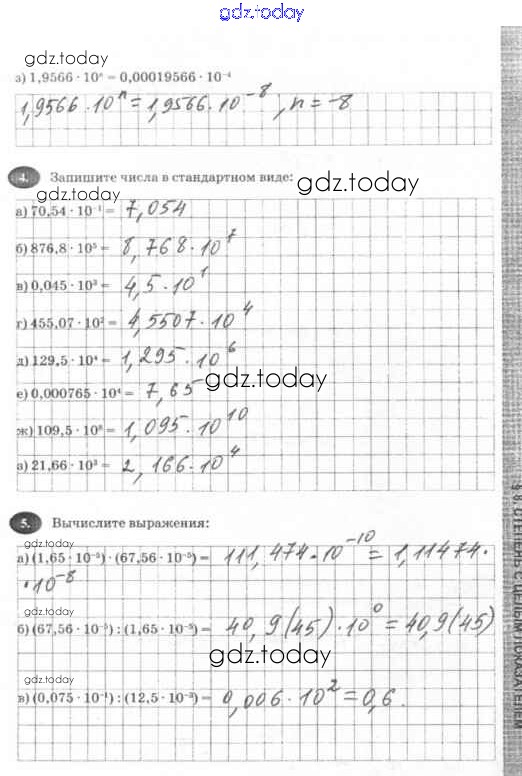 gdz.today
gdz.today
з) 1,9566 · 10ⁿ = 0,00019566 · 10⁻⁴
1,9566 · 10ⁿ = 1,9566 · 10⁻⁸, n = -8
4. Запишите числа в стандартном виде:
gdz.today
gdz.today
а) 70,54 · 10⁻¹ = 7,054
б) 876,8 · 10⁵ = 8,768 · 10⁷
в) 0,045 · 10³ = 4,5 · 10¹
г) 455,07 · 10² = 4,5507 · 10⁴
д) 129,5 · 10⁴ = 1,295 · 10⁶
gdz.today
е) 0,000765 · 10⁴ = 7,65
ж) 109,5 · 10⁸ = 1,095 · 10¹⁰
з) 21,66 · 10³ = 2,166 · 10⁴
5. Вычислите выражения:
gdz.today
а) (1,65 · 10⁻⁵) · (67,56 · 10⁻⁵) = 111,474 · 10⁻¹⁰ = 1,11474 ·
· 10⁻⁸
gdz.today
б) (67,56 · 10⁻⁵) : (1,65 · 10⁻⁵) = 40,9(45) · 10⁰ = 40,9(45)
gdz.today
gdz.today
в) (0,075 · 10⁻¹) : (12,5 · 10⁻³) = 0,006 · 10² = 0,6.
§ 8. СТЕПЕНЬ С ЦЕЛЫМ ПОКАЗАТЕЛЕМ